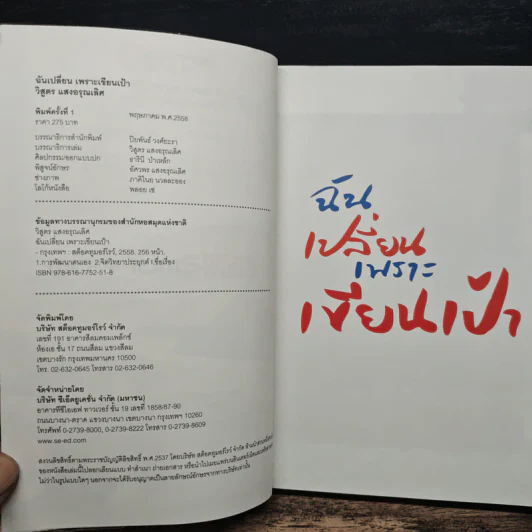 ฉันเปลี่ยน เพราะเขียนเป้า
วิสูตร แสงอรุณเลิศ
พิมพ์ครั้งที่ 1 พฤษภาคม พ.ศ.2558
ราคา 275 บาท
บรรณาธิการสำนักพิมพ์ ปิยพันธ์ วงศ์ยะรา
บรรณาธิการเล่ม วิสูตร แสงอรุณเลิศ
ศิลปกรรมออกแบบปก อารินี ป่าเหล็ก
พิสูจน์อักษร อัศวพร แสงอรุณเลิศ
ช่างภาพ ภาศิไนย นวลละออง
โลโก้หนังสือ พลอย เซ่
ข้อมูลทางบรรณานุกรมของสำนักหอสมุดแห่งชาติ
วิสูตร แสงอรุณเลิศ
ฉันเปลี่ยนเพราะเขียนเป้า
- กรุงเทพฯ : สต็อคทูมอร์โรว์, 2558. 256 หน้า.
1.การพัฒนาตนเอง 2.จิตวิทยาประยุกต์ I.ชื่อเรื่อง
ISBN 978-616-7752-51-8
จัดพิมพ์โดย
บริษัท สต็อคทูมอร์โรว์ จำกัด
เลขที่ 191 อาคารสีลมคอมเพล็กซ์
ห้องเอ ชั้น 17 ถนนสีลม แขวงสีลม
เขตบางรัก กรุงเทพมหานคร 10500
โทร. 02-632-0645 โทรสาร 02-632-0646
จัดจำหน่ายโดย
บริษัท ซีเอ็ดยูเคชั่น จำกัด (มหาชน)
อาคารทีซีไอเอฟ ทาวเวอร์ ชั้น 19 เลขที่ 1858/87-90
ถนนบางนา-ตราด แขวงบางนา เขตบางนา กรุงเทพฯ 10260
โทรศัพท์ 0-2739-8000, 0-2739-8222 โทรสาร 0-2739-8609
www.se-ed.com
สงวนลิขสิทธิ์ตามพระราชบัญญัติลิขสิทธิ์ พ.ศ.2537 โดยบริษัท สต็อคทูมอร์โรว์ จำกัด
ของหนังสือเล่มนี้ไปลอกเลียนแบบ ทำสำเนา ถ่ายเอกสาร หรือนำไปเผยแพร่บนอินเตอร์เน็ต
ไม่ว่าในรูปแบบใดๆ นอกจากจะได้รับอนุญาตเป็นลายลักษณ์อักษรจากทางบริษัทเท่านั้น
ฉัน
เปลี่ยน
เพราะ
เขียนเป้า